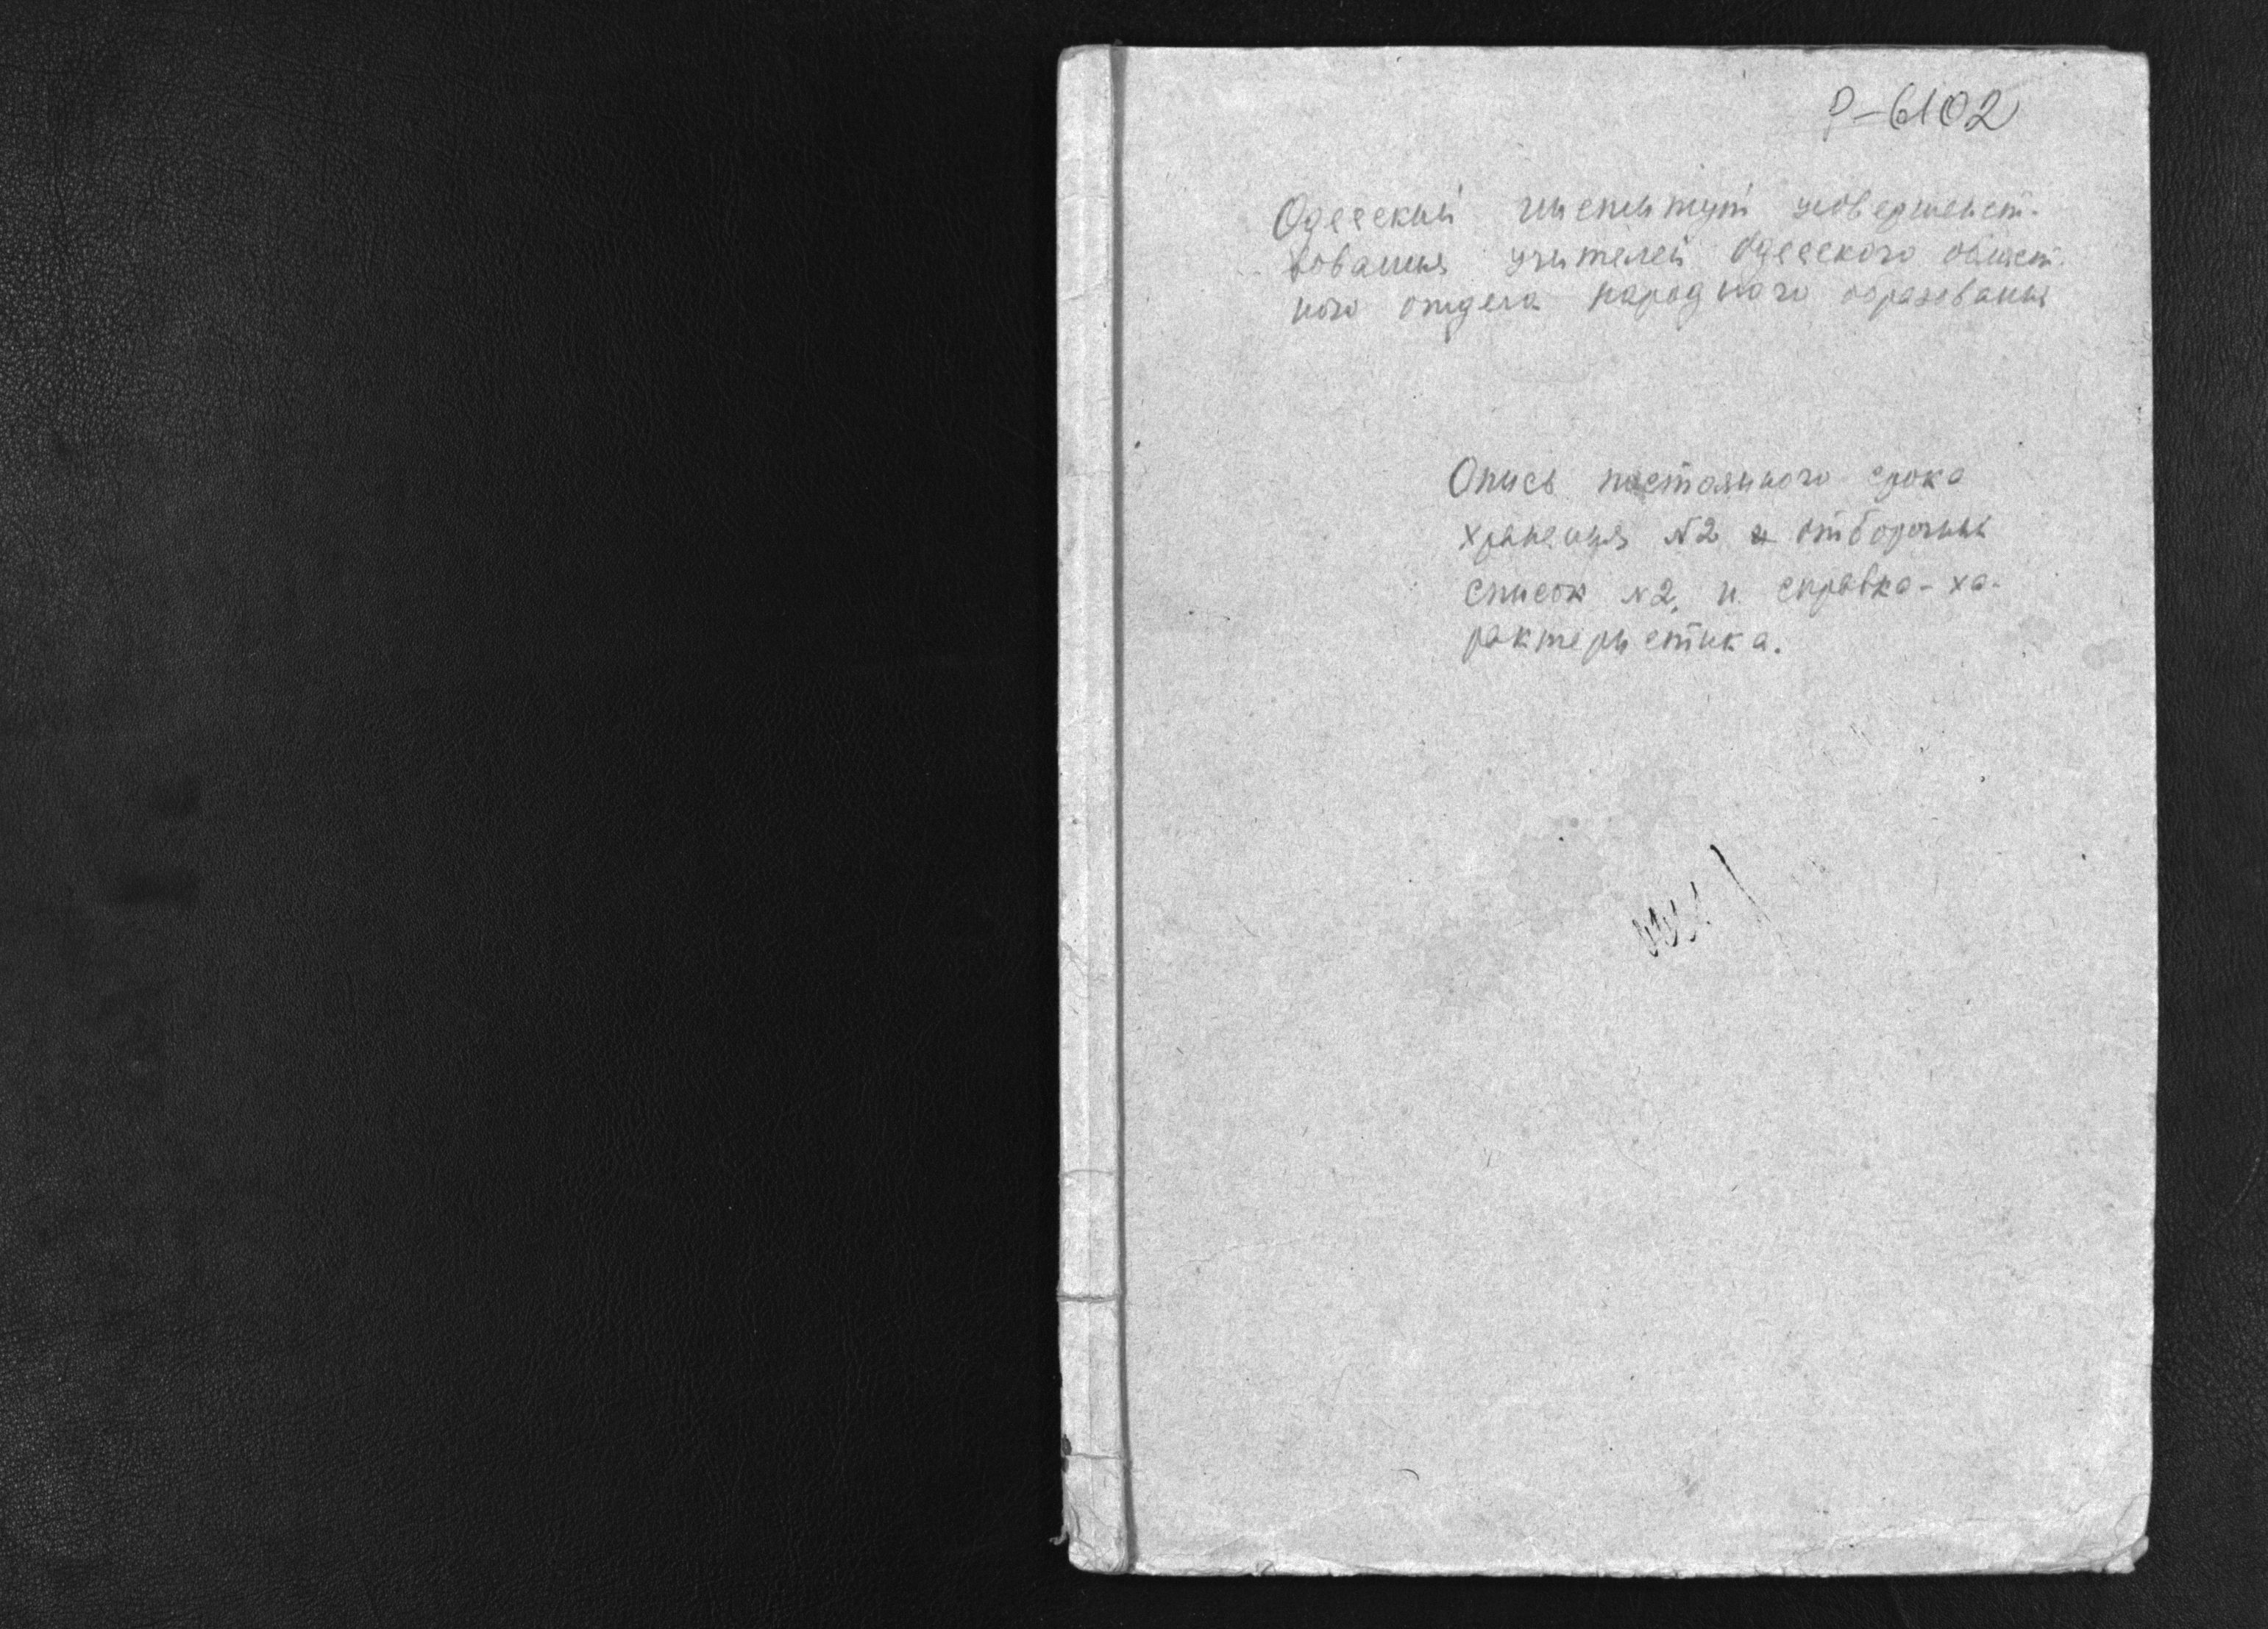 Р-6102
Одесский институт усовершенст-
вования учителей Одесского област-
ного отдела народного образования
Опись постоянного срока
хранения №2 и отборочный
список №2, и справка-ха-
рактеристика.